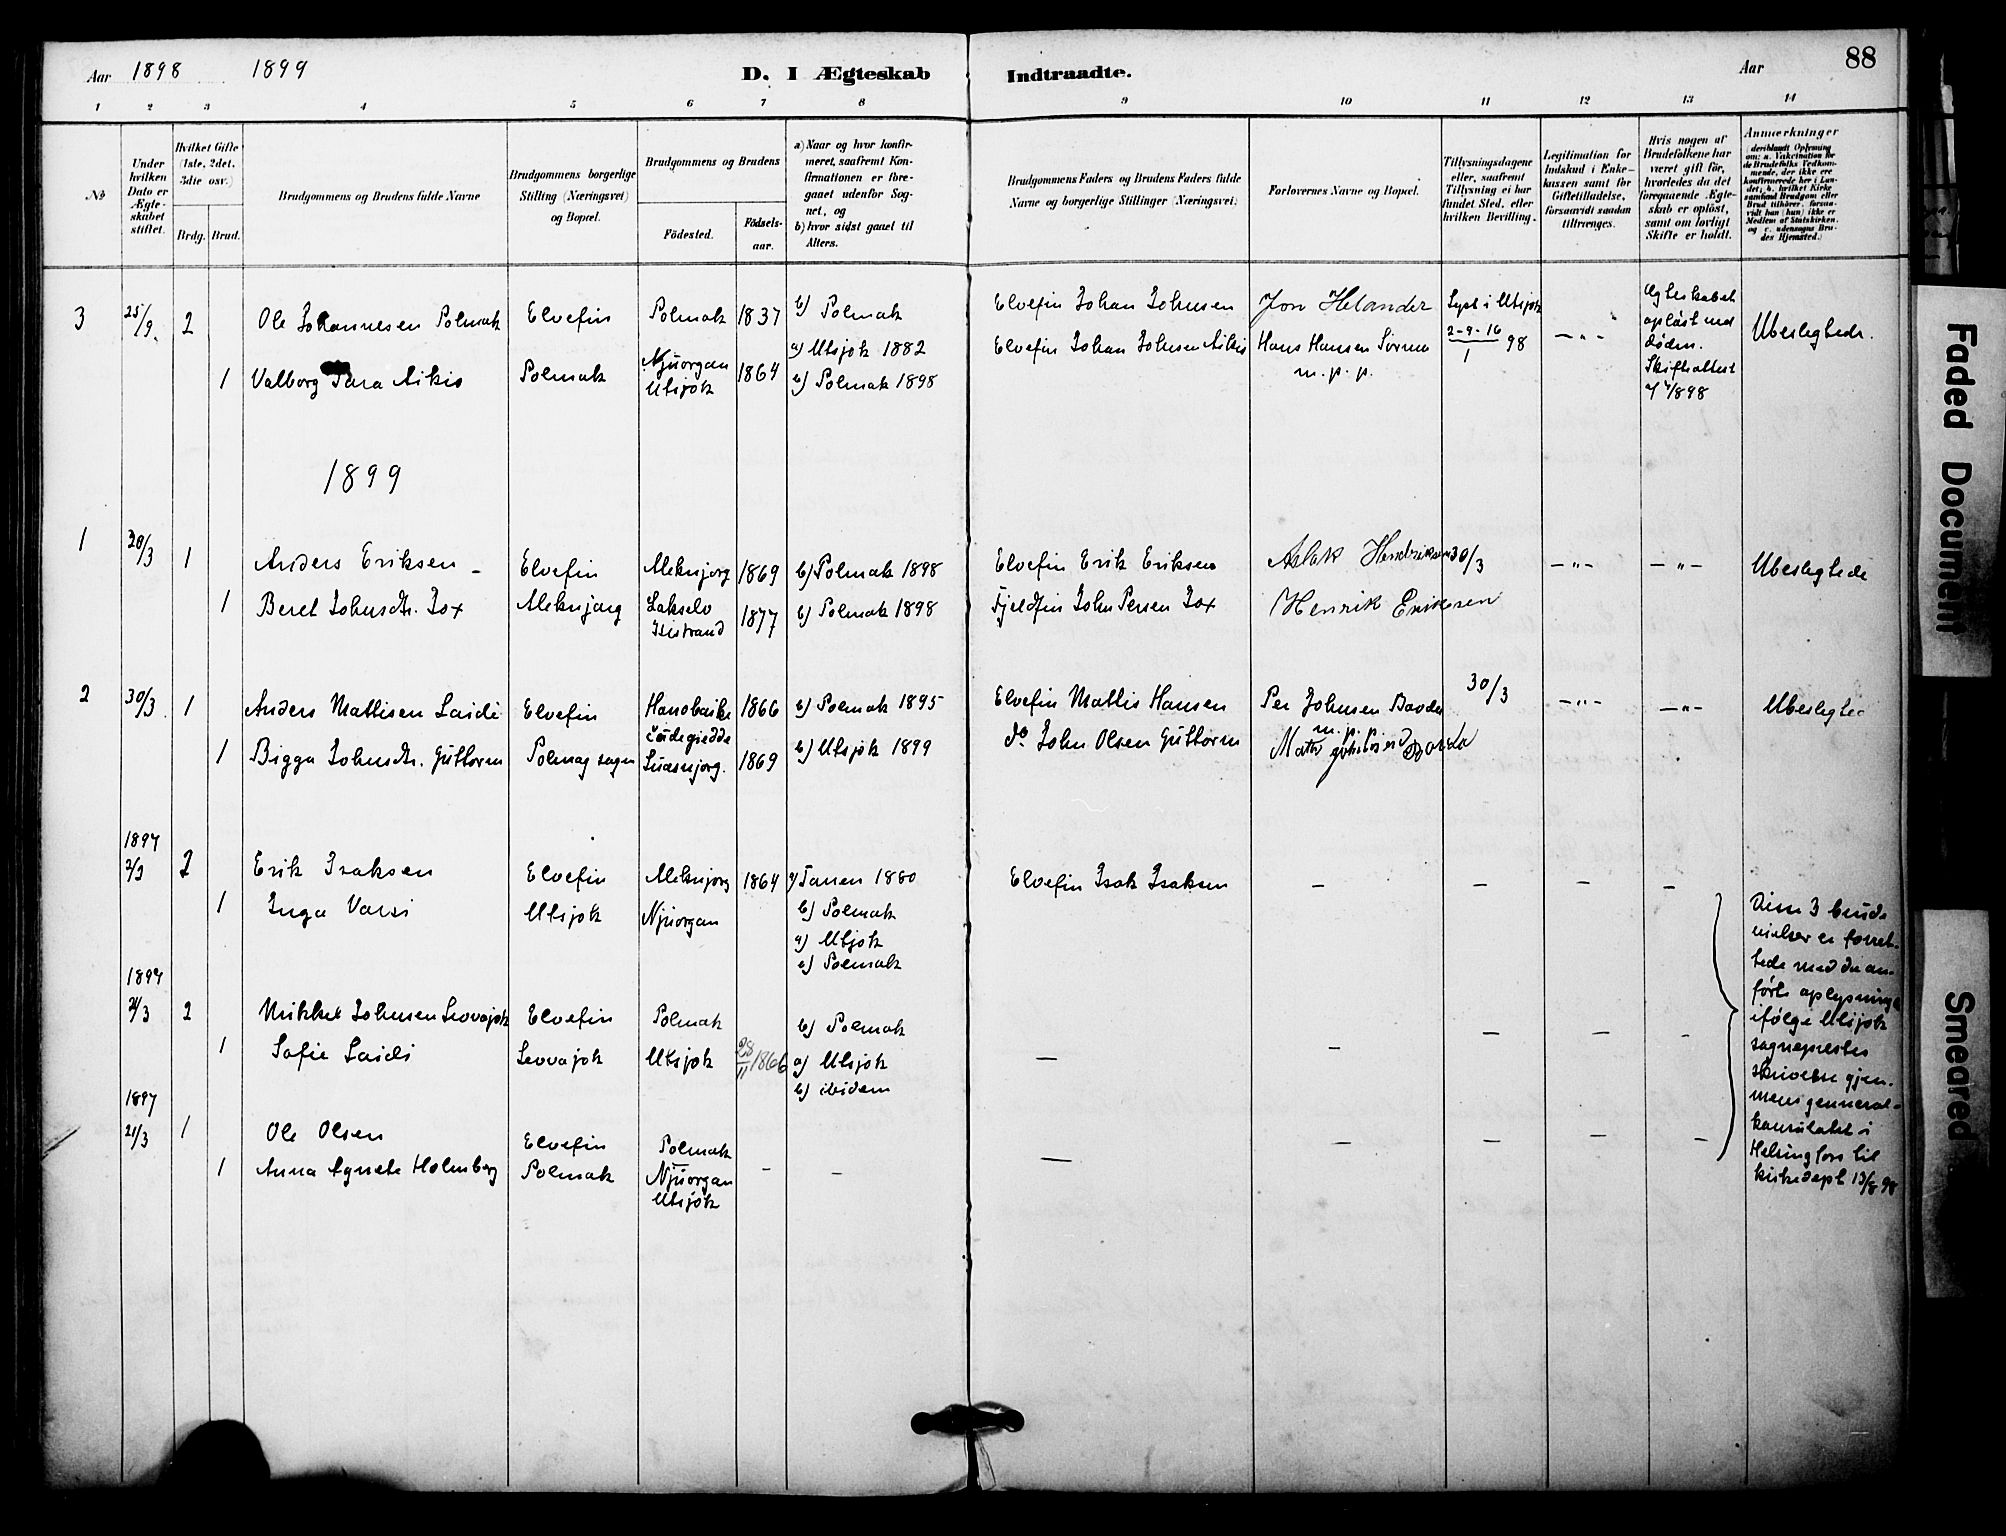 Aar 1898 1899
D. I Ægteskab Indtraadte.
Aar
88
1 2 3 4 5 6 7 8 9 10 11 12 13 14
No
Under hvilken Dato er Ægteskabet stiftet.
Hvilket Gifte (1ste, 2det, 3die osv.)
Brdg. Brud.
Brudgommens og Brudens fulde Navne
Brudgommens borgerlige Stilling (Næringsvei) og Bopæl.
Brudgommens og Brudens
Fødested.
Fødselsaar.
a) Naar og hvor konfirmeret, saafremt Konfirmationen er foregaaet udenfor Sognet, og
b) hvor sidst gaaet til Alters.
Brudgommens Faders og Brudens Faders fulde Navne og borgerlige Stillinger (Næringsvei)
Forlovernes Navne og Bopæl.
Tillysningsdagene eller, saafremt Tillysning ei har fundet Sted, efter hvilken Bevilling.
Legitimation for Indskud i Enkekassen samt for Giftetilladelse, forsaavidt saadan tiltrænges.
Hvis nogen af Brudefolkene har været gift før, hvorledes da det foregaaende Ægteskab er opløst, samt om lovligt Skifte er holdt.
Anmærkninger
deriblandt Oplysning om: a. Vakcination for de Brudefolks Vedkommende, der ikke ere konfirmerede her i Landet, b. hvilket Kirkesamfund Brudgom eller Brud tilhører, forsaavidt han (hun) ikke er Medlem af Statskirken, og c. udensogns Brudes Hjemsted.)
3 25/9. 2 Ole Johannesen Polmak Elvefin Polmak 1837 b) Polmak Elvefin Johan Johnsen Jon Helander Lyst i Utsjok 2-9-16/1 98 -"- Egteskabet opløst ved døden. Skifteattest Ubeslegtede.
1 Valborg Sara Aikio Polmak Njuorgan Utsjok 1864 a) Utsjok 1882 b) Polmak 1898 Elvefin Johan Johnsen Aikio Hans Hansen
m. p. p.
1899
1 30/3 1 Anders Eriksen Elvefin 1869 b) Polmak 1898 Elvefin Erik Eriksen Aslak Hendriksen 30/3 -"- -"- Ubeslegtede
1 Beret Johnsdtr. Lakselv Kistrand 1877 b) Polmak 1898 Fjeldfin John Persen Henrik Eriksen
2 30/3 1 Anders Mathisen Laiti Elvefin 1866 b) Polmak 1895 Elvefin Mathis Hansen Per Johnsen 30/3 -"- -"- Ubeslegtede
1 Bigga Johnsdtr. Guttorm Polmag sogn 1869 b) Utsjok 1899 do John Olsen Guttorm
m. p. p.
1897
2 Erik Isaksen Elvefin 1864 a) Tanen 1880 Elvefin Isak Isaksen - - - -
b) Polmak
1 Inga Utsjok Njuorgan
a) Utsjok
b) Polmak
1897
21/3 2 Mikkel Johnsen Levvajok Elvefin Polmak b) Polmak
1 Sofie Laiti Levvajok Utsjok 28/11 1866 a) Utsjok
b) ibidem
1897
21/3 1 Ole Olsen Elvefin Polmak
1 Anna Agnete Holmberg Polmak Njuorgan Utsjok - -
Disse 3 brude
vielser er forret-
tede med de an-
førte oplysninger
ifølge Utsjok
sogneprestes
skrivelse gjen-
nem general-
konsulatet i
Helsingfors til
kirkedept 13/8 98
Faded Document
Smeared